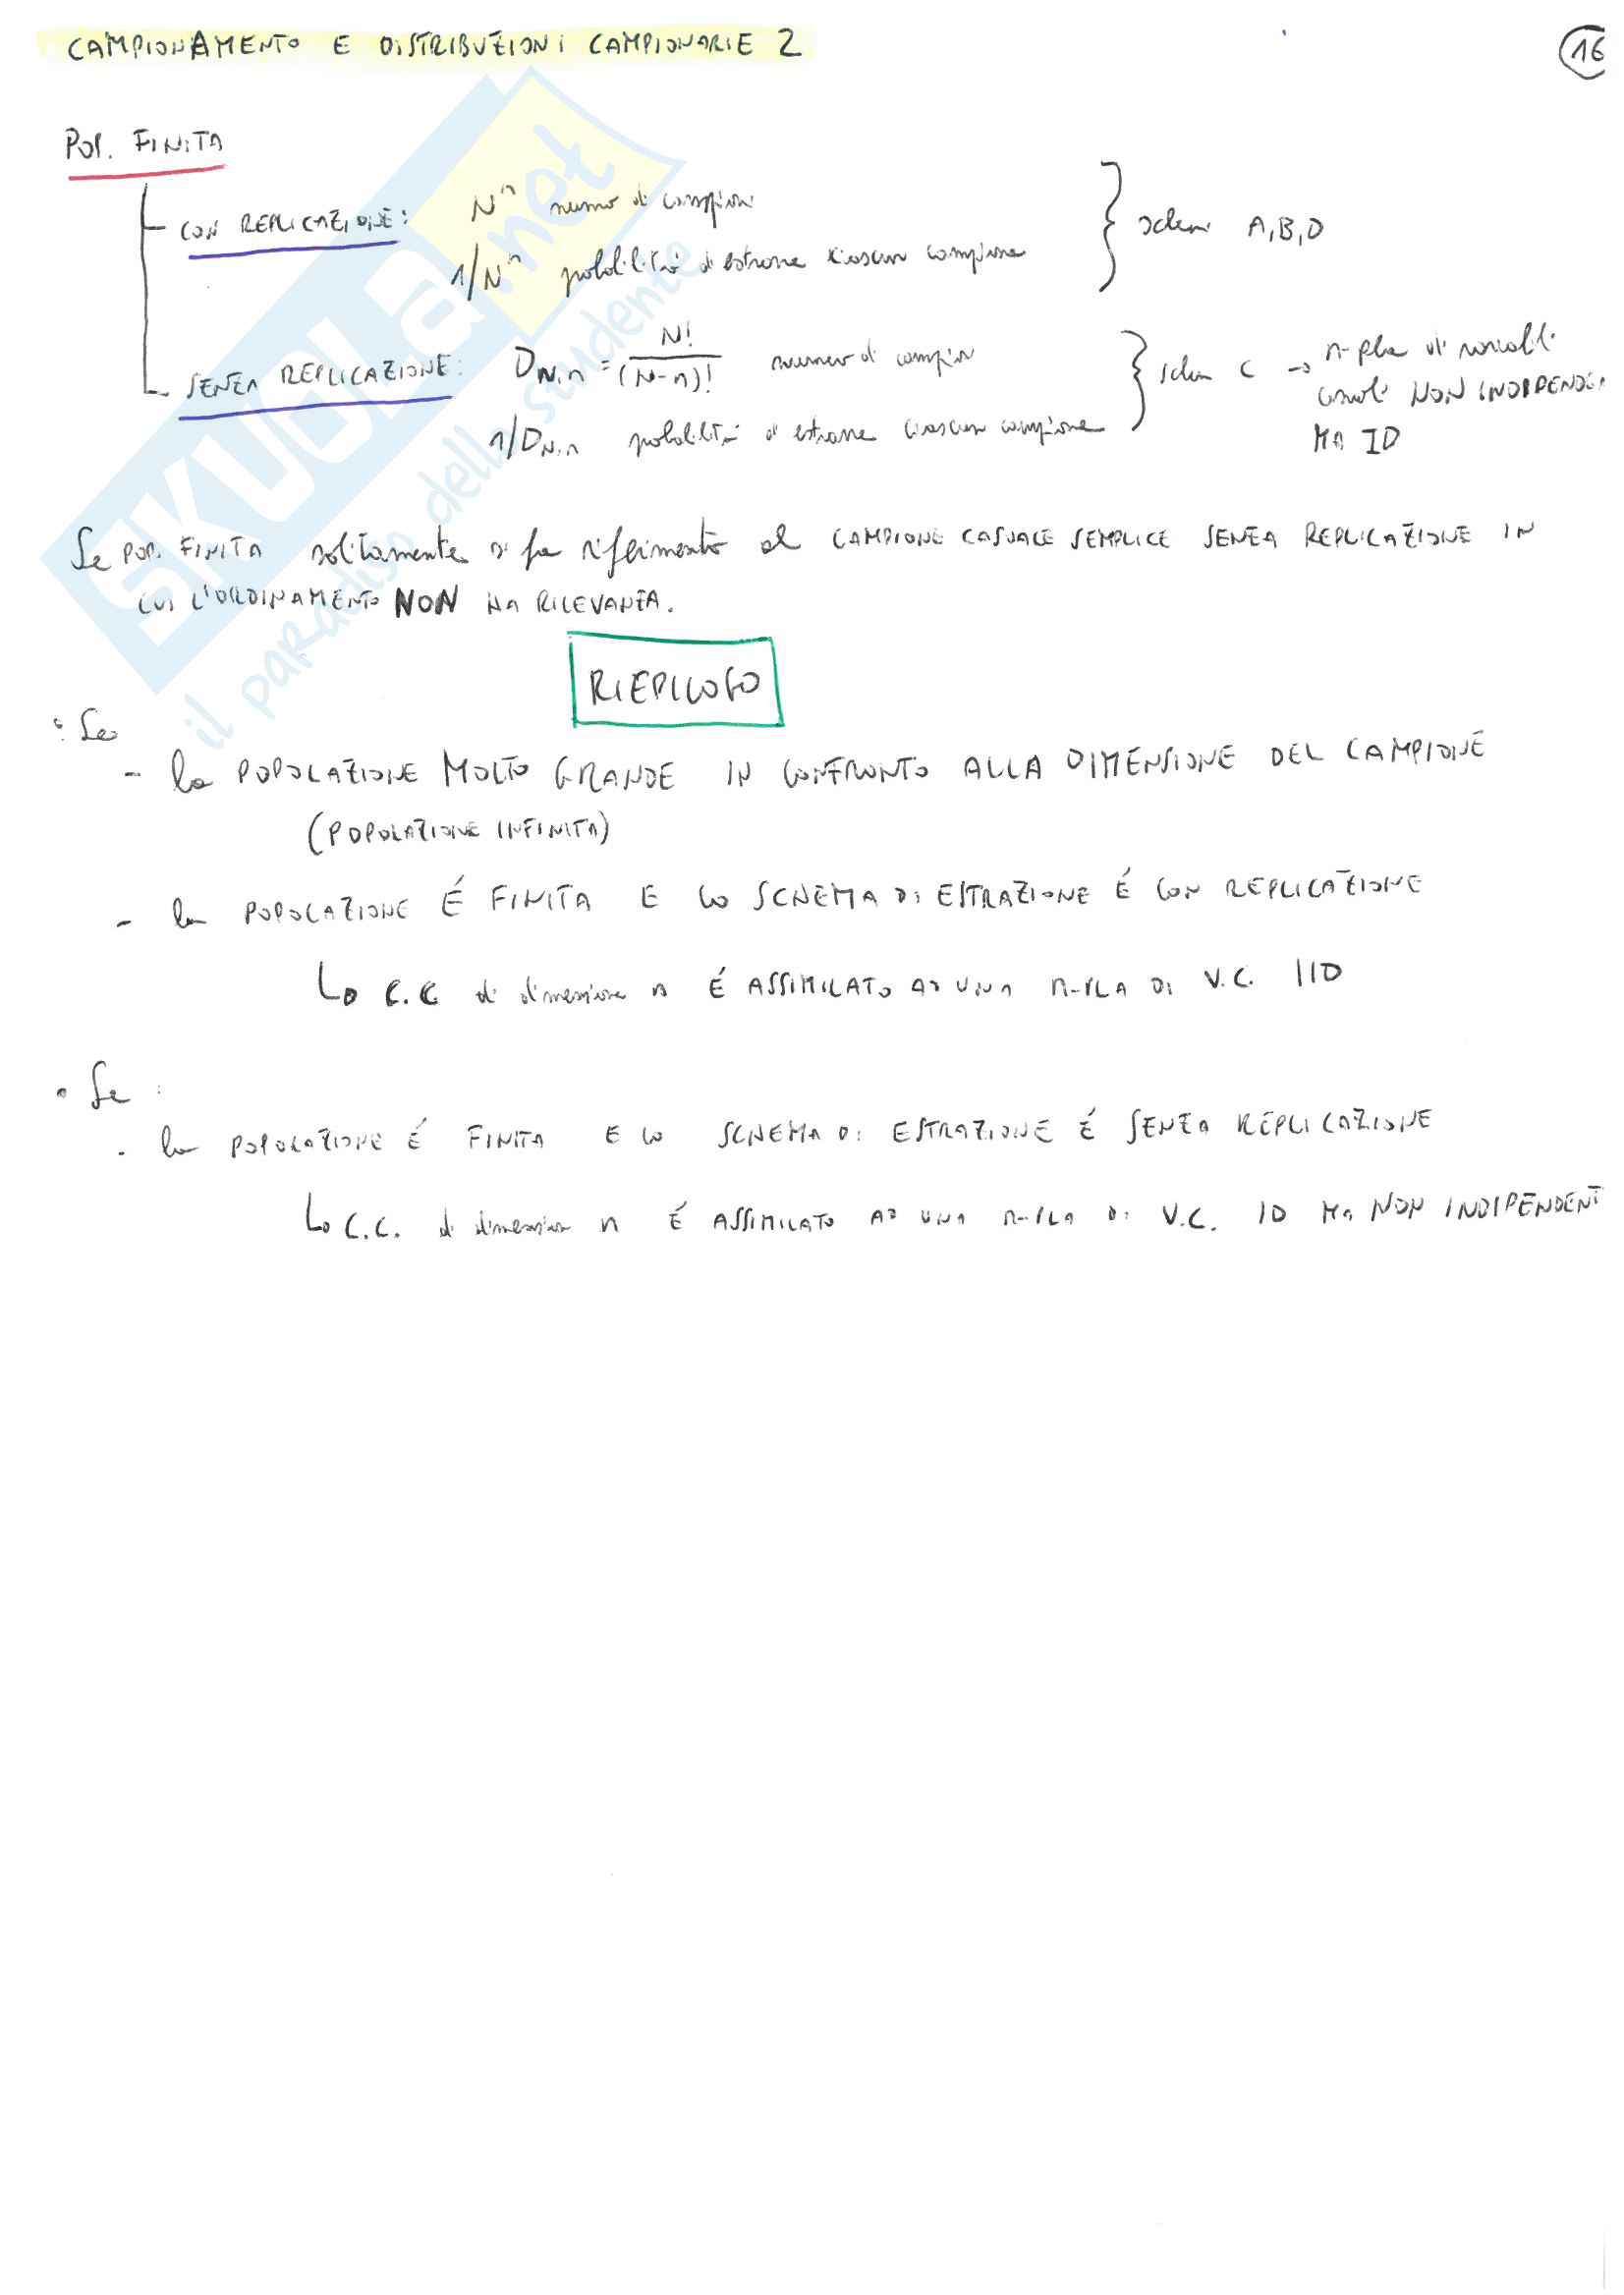 CAMPIONAMENTO E DISTRIBUZIONI CAMPIONARIE 2
16
POP. FINITA
CON REPLICAZIONE: Nⁿ numero di campioni
1/Nⁿ probabilità di estrarre ciascun campione
} schemi A, B, D
SENZA REPLICAZIONE: D_{N,n} = N!/(N-n)! numero di campioni
1/D_{N,n} probabilità di estrarre ciascun campione
} schema C → n-pla di variabili
casuali NON INDIPENDENTI
MA ID
Se POP. FINITA solitamente si fa riferimento al CAMPIONE CASUALE SEMPLICE SENZA REPLICAZIONE IN
CUI L'ORDINAMENTO NON HA RILEVANZA.
RIEPILOGO
: Se
- la POPOLAZIONE MOLTO GRANDE IN CONFRONTO ALLA DIMENSIONE DEL CAMPIONE
(POPOLAZIONE INFINITA)
- la POPOLAZIONE É FINITA E LO SCHEMA DI ESTRAZIONE É CON REPLICAZIONE
Lo C.C di dimensione n É ASSIMILATO AD UNA n-PLA DI V.C. IID
• Se :
- la POPOLAZIONE É FINITA E LO SCHEMA DI ESTRAZIONE É SENZA REPLICAZIONE
Lo C.C. di dimensione n É ASSIMILATO AD UNA n-PLA DI V.C. ID MA NON INDIPENDENTI
SKUOLa.net
il paRadiso dello studente